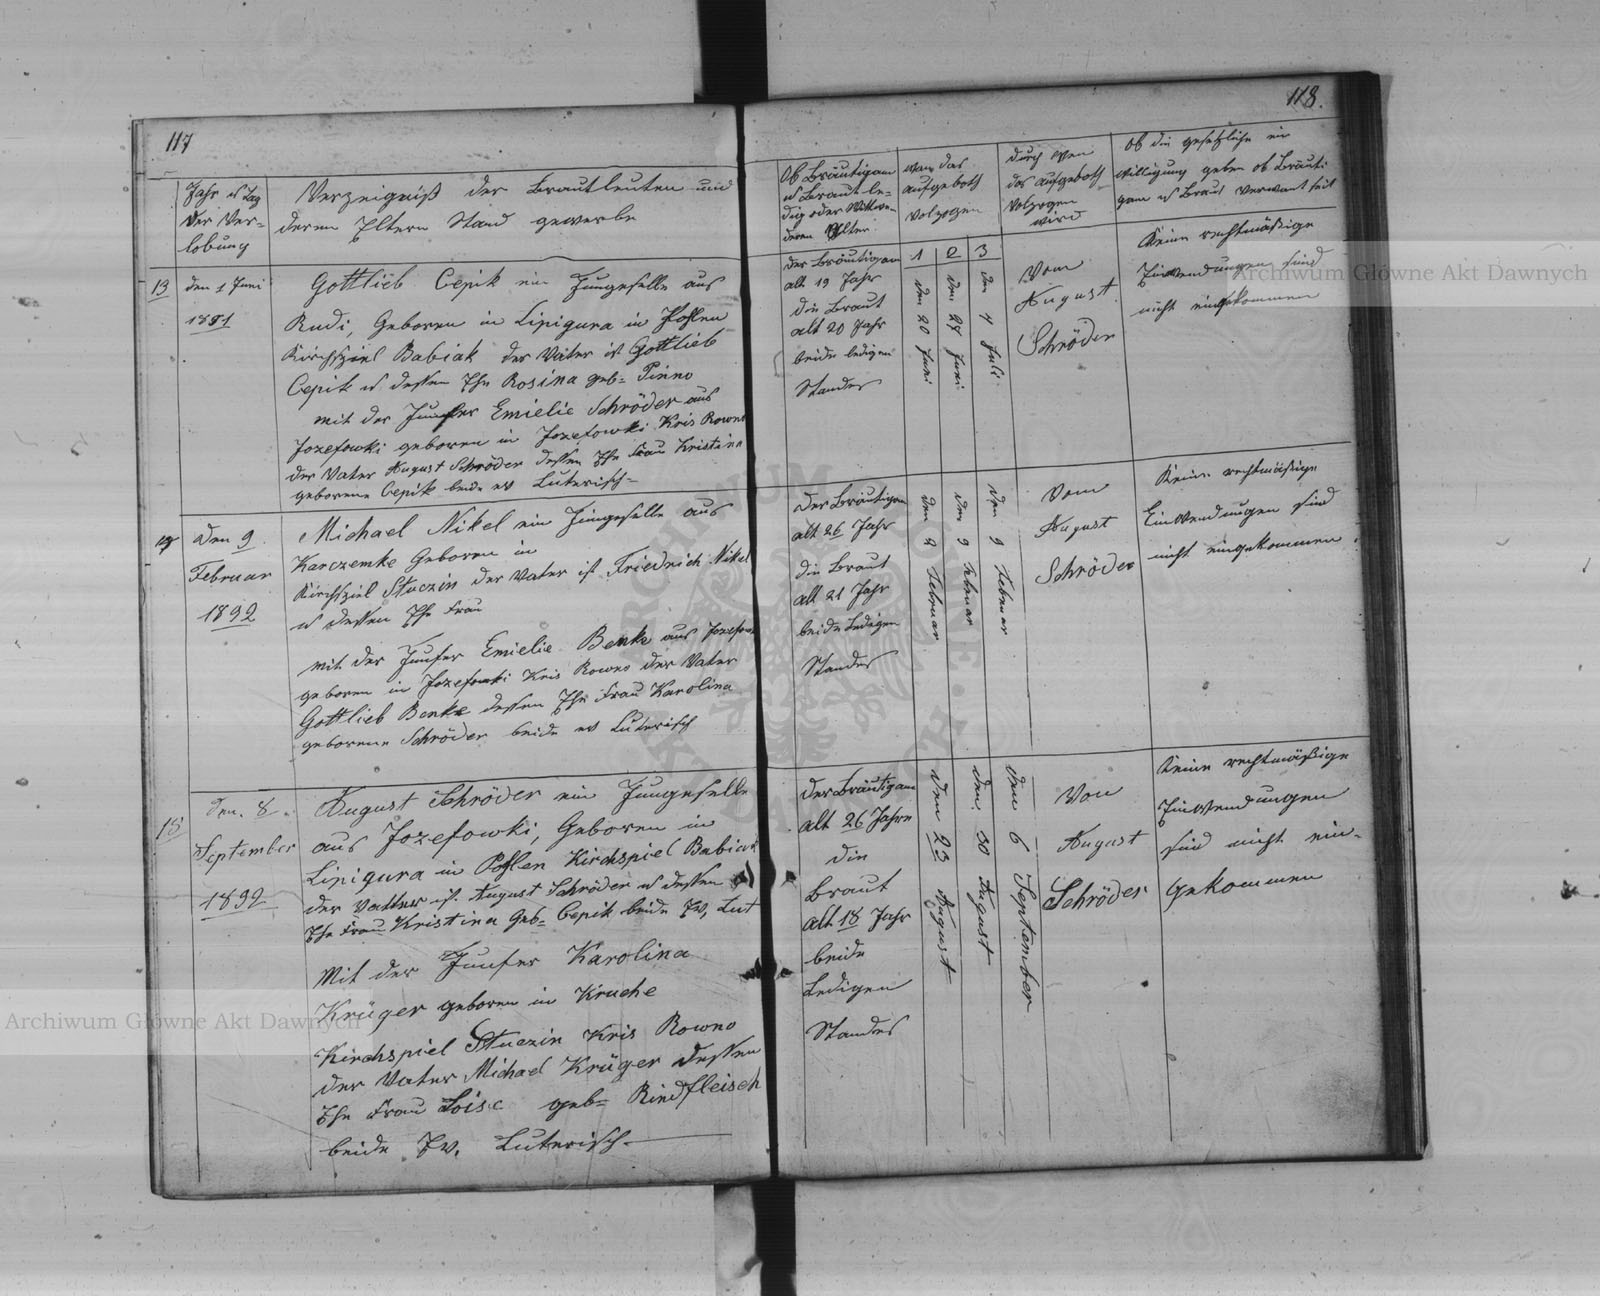 117
Jahr u Tag
der Ver=
lobung
Verzeigniß der Brautleuten und
deren Eltern Stand gewerbe
13
den 1 Juni
1891
Gottlieb Cepik ein Jungeselle aus
Rudi, Geboren in Lipigura in Pohlen
Kirchspiel Babiak der Vater ist Gottlieb
Cepik u dessen Ehe Rosina geb= Pinno
mit der Junfer Emielie Schröder aus
Jozefowki geboren in Jozefowki Kris Rowno
der Vater August Schröder dessen Ehe Frau Kristina
geborene Cepik beide ev Luterisch=
den 9
Februar
1892
Michael Nikel ein Jungeselle aus
Karczemke Geboren in
Kirchspiel Stuczin der Vater ist Friedrich Nikel
u dessen Ehe Frau
mit der Junfer Emielie Benke aus
geboren in Jozefowki Kris Rowno der Vater
Gottlieb Benke dessen Ehe Frau Karolina
geborene Schröder beide ev Luterisch
15
den. 8.
September
1892
August Schröder ein Jungeselle
aus Jozefowki, Geboren in
Lipigura in Pohlen Kirchspiel Babiak
der Vatter ist August Schröder u dessen
Ehe Frau Kristina Geb= Cepik beide Ev, Lut
Mit der Junfer Karolina
Krüger geboren in Kruche
Kirchspiel Stuczin Kris Rowno
der Vater Michael Krüger dessen
Ehe Frau Loise geb= Rindfleisch
beide Ev. Luterisch-
118.
Ob Bräutigam
u Braut le=
dig oder Wittwe=
deren Alter.
wan das
aufgeboth
volzogen
durch wen
das aufgeboth
volzogen
wird
Ob die gesetzliche ein
williigung geben ob Bräuti
gam u Braut verwant seit
der Bräutigam
alt 19 Jahr
die Braut
alt 20 Jahr
beide ledigen
Standes
1 2 3
den 20 Juni
den 27 Juni
den 4 Juli
Vom
August
Schröder
Keine rechtmäßige
Einwendungen sind
nicht eingekommen
der Bräutigam
alt 26 Jahr
die Braut
alt 21 Jahr
beide Ledigen
Standes
den 9 Februar
den 9 Februar
Vom
August
Schröder
Keine rechtmäßige
Einwendungen sind
nicht eingekommen
der Bräutigam
alt 26 Jahre
die
Braut
alt 18 Jahr
beide
Ledigen
Standes
den 23 August
den. 30 August
den 6 September
Von
August
Schröder
Keine rechtmäßige
Einwendungen
sind nicht ein-
gekommen
Archiwum Główne Akt Dawnych
Archiwum Główne Akt Dawnych